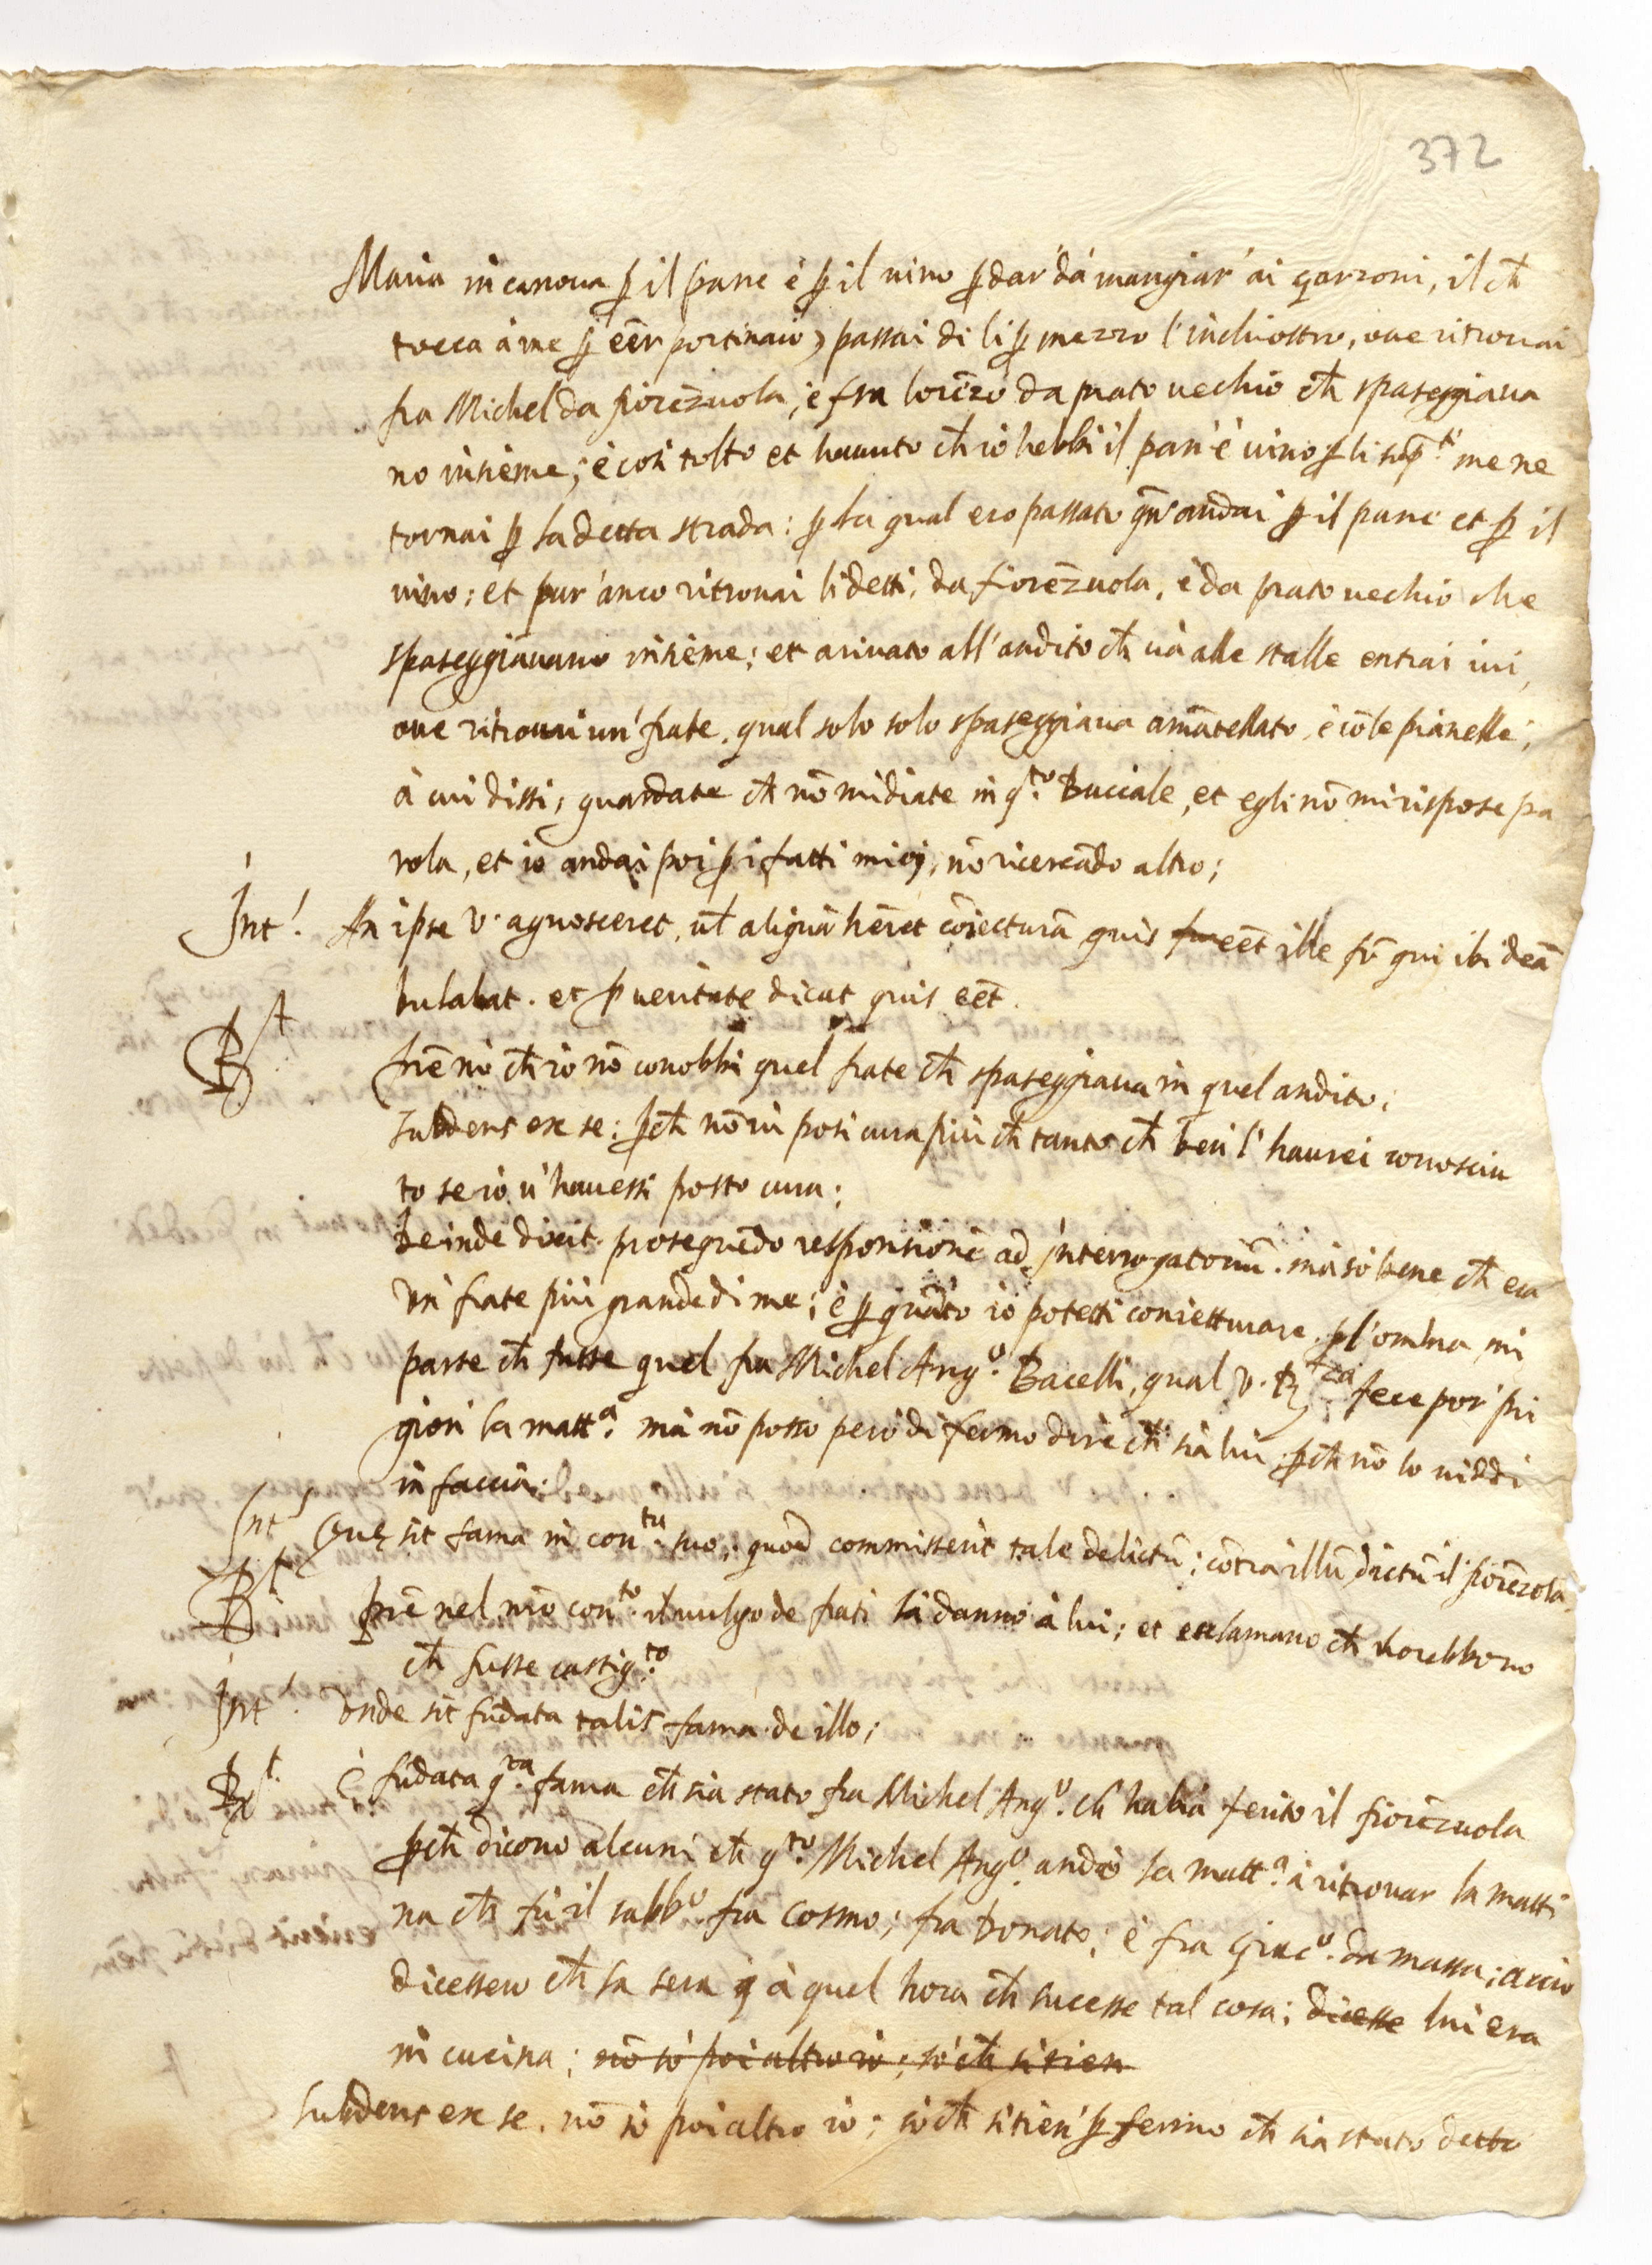 372
Maria in canova ꝑ il pane è ꝑ il vino ꝑ dar' dà mangiar' ai garzoni, il ch̄
tocca à me ꝑ eēr portinaio) passai di li ꝑ mezzo l'inchiostro, ove ritrovai
fra Michel da fiorēzuola, è fra lorēzo da prato vechio ch̄ spaseggiava
no insieme; è cosi tolto et hauuto ch̄ io hebbi il pan' è vino ꝑ li sup.ti me ne
tornai ꝑ la detta strada: ꝑ la qual ero passato qn̄ andai ꝑ il pane et ꝑ il
vino; et pur' anco ritrovai li detti, da fiorēzuola, è da prato vechio che
spaseggiavano insieme; et arivato all'andito ch̄ và alle stalle entrai ivi,
ove ritrovai un' frate, qual solo solo spaseggiava amātellato, è cō le pianelle;
à cui dissi, guardate ch̄ nō mi diate in q.to Bucciale, et egli nō mi rispose pa
rola, et io andai poi ꝑ i fatti miej, nō ricercādo altro;
Int.! An ipse v. agnosceret, ul̄ aliquā hēret cōiecturā quis fu eēt ille fr̄ qui ibi deā
bulabat. et ꝑ veritate dicat quis eēt.
R.t Pr̄e nò ch̄ io nō conobbi quel frate ch̄ spaseggiava in quel andito;
subdens ex se: ꝑch̄ nō vi posi cura più ch̄ tanto ch̄ ben l'haurei conosciu
to se io v'havessi posto cura;
deinde dixit. prosequēdo responsionē ad interrogatoriū. mà sò bene ch̄ era
un frate più grande di me; è ꝑ quāto io potetti coniettturare ꝑ l'ombra mi
parse ch̄ fusse quel fra Michel Ang.o Bacelli, qual V. R.za fece por' pri
gion la matt.a mà nō posso però di fermo dire ch̄ sia lui, ꝑch̄ nō lo viddi
in faccia;
Int.s Quę sit fama in con.tu suo, quod commisserit tale delictū; cōtra illū dictū il fiorēzola.
R.t Pr̄e nel nr̄o con.to il vulgo de frati la danno à lui; et esclamano ch̄ vorebbono
ch̄ fusse castig.to
Int.s Unde sit fūdata talis fama de illo;
R.t È fūdata q.ta fama ch̄ sia stato fra Michel Ang.o ch' habia ferito il fiorēzuola
ꝑch̄ dicono alcuni ch̄ q.to Michel Ang.o andò la matt.a à ritrovar la matti
na ch̄ fù il sabb.o fra Cosmo; fra Donato; è fra Giac.o da massa; accio
dicessero ch̄ la sera à quel hora ch̄ sucesse tal cosa; dicesse lui era
in cucina; nō sò poi altro io; sò ch̄ si tien
subdens ex se. nō sò poi altro io; sò ch̄ si tien' ꝑ fermo ch̄ sia stato detto